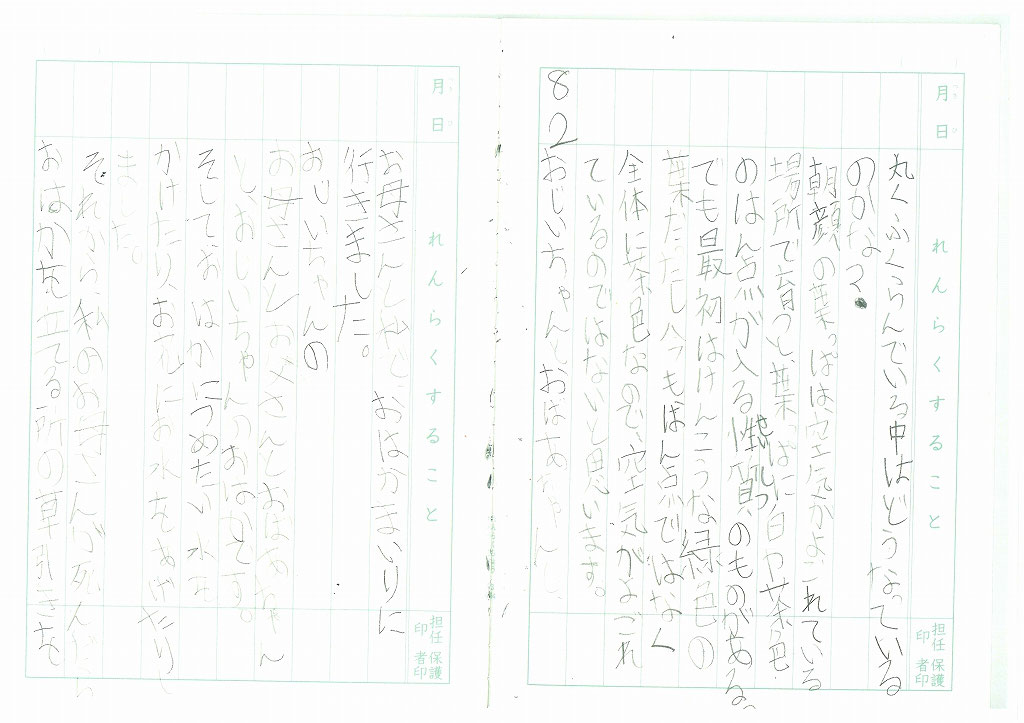 月 日
れんらくすること
担任印
保護者印
丸くふくらんでいる中はどうなっている
のかな?
朝顔の葉っぱは、空気がよごれている
場所で育つと、葉っぱに白や茶色
のはん点が入る性質のものがある。
でも最初はけんこうな緑色の
葉だったし、八つもはん点ではなく
全体に茶色なので、空気がよごれ
ているのではないと思います。
8 2
おじいちゃんとおばあちゃんと
お母さんと私で、おはかまいりに
行きました。
おじいちゃんの
お母さんとお父さんとおばあちゃん
と、おじいちゃんのおはかです。
そしておはかにつめたい水を
かけたり、お花にお水をあげたりし
ました。
それから私のお母さんが死んだら
おはかを立てる所の草引きを
月 日
れんらくすること
担任印
保護者印